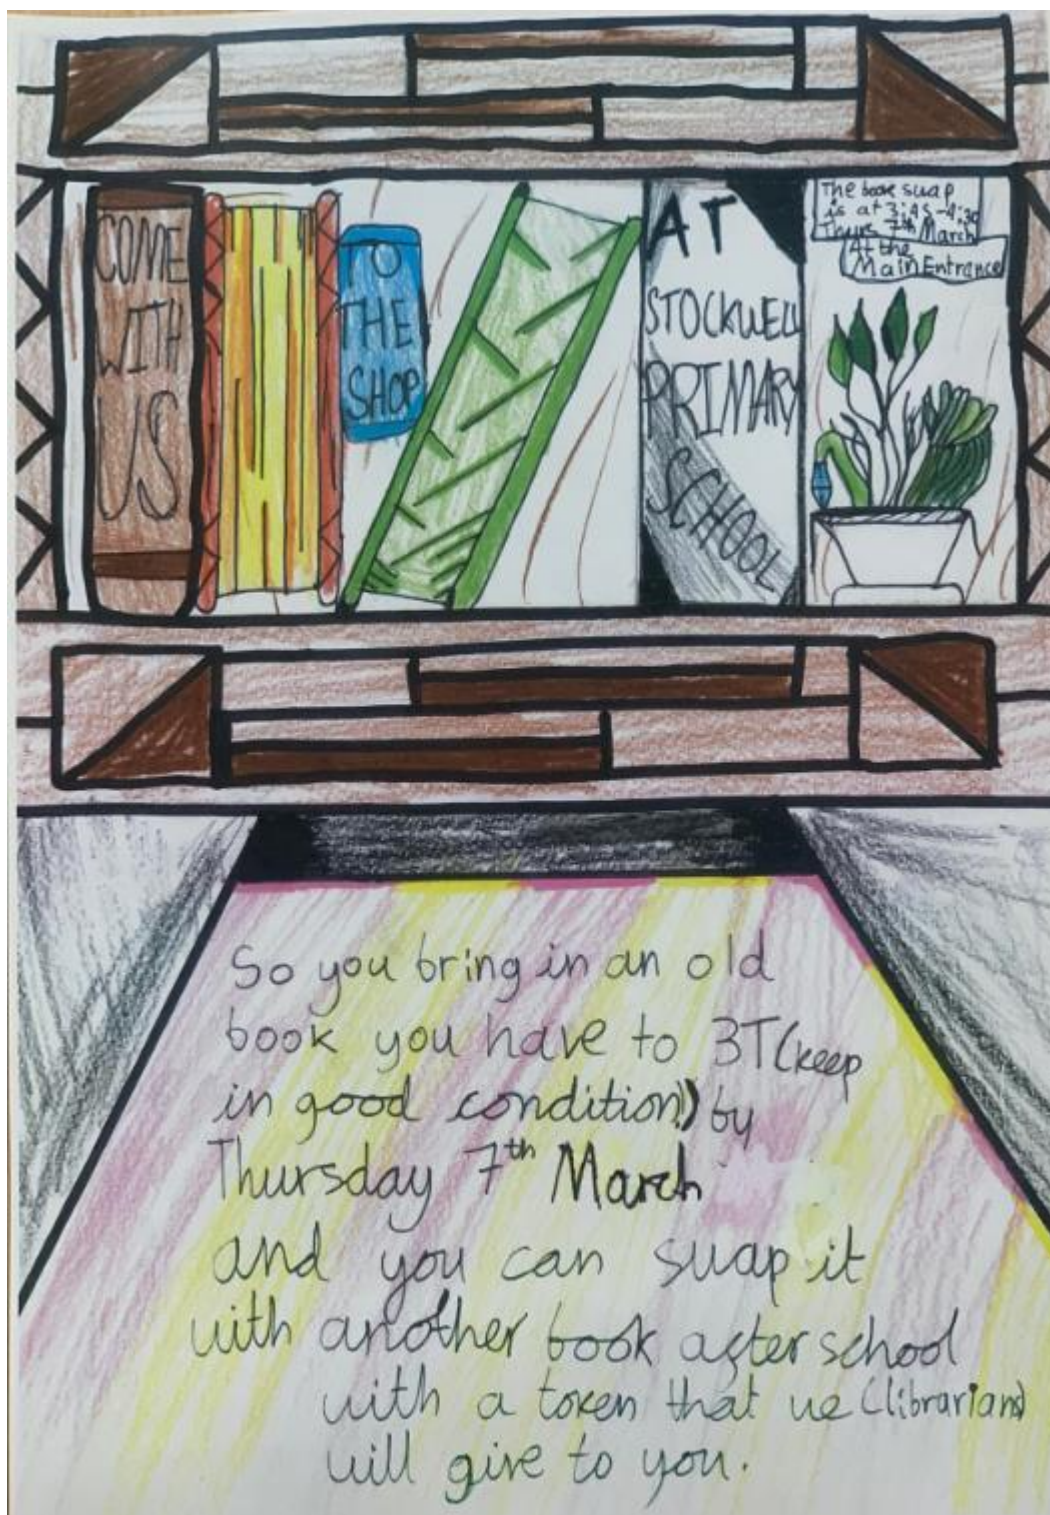 COME
WITH
US
TO
THE
SHOP
AT
STOCKWELL
PRIMARY
SCHOOL
The book swap
is at 3:45-4:30
Thurs 7th March
At the
Main Entrance
So you bring in an old
book you have to 3T (keep
in good condition!) by
Thursday 7th March
and you can swap it
with another book after school
with a token that we (librarians)
will give to you.